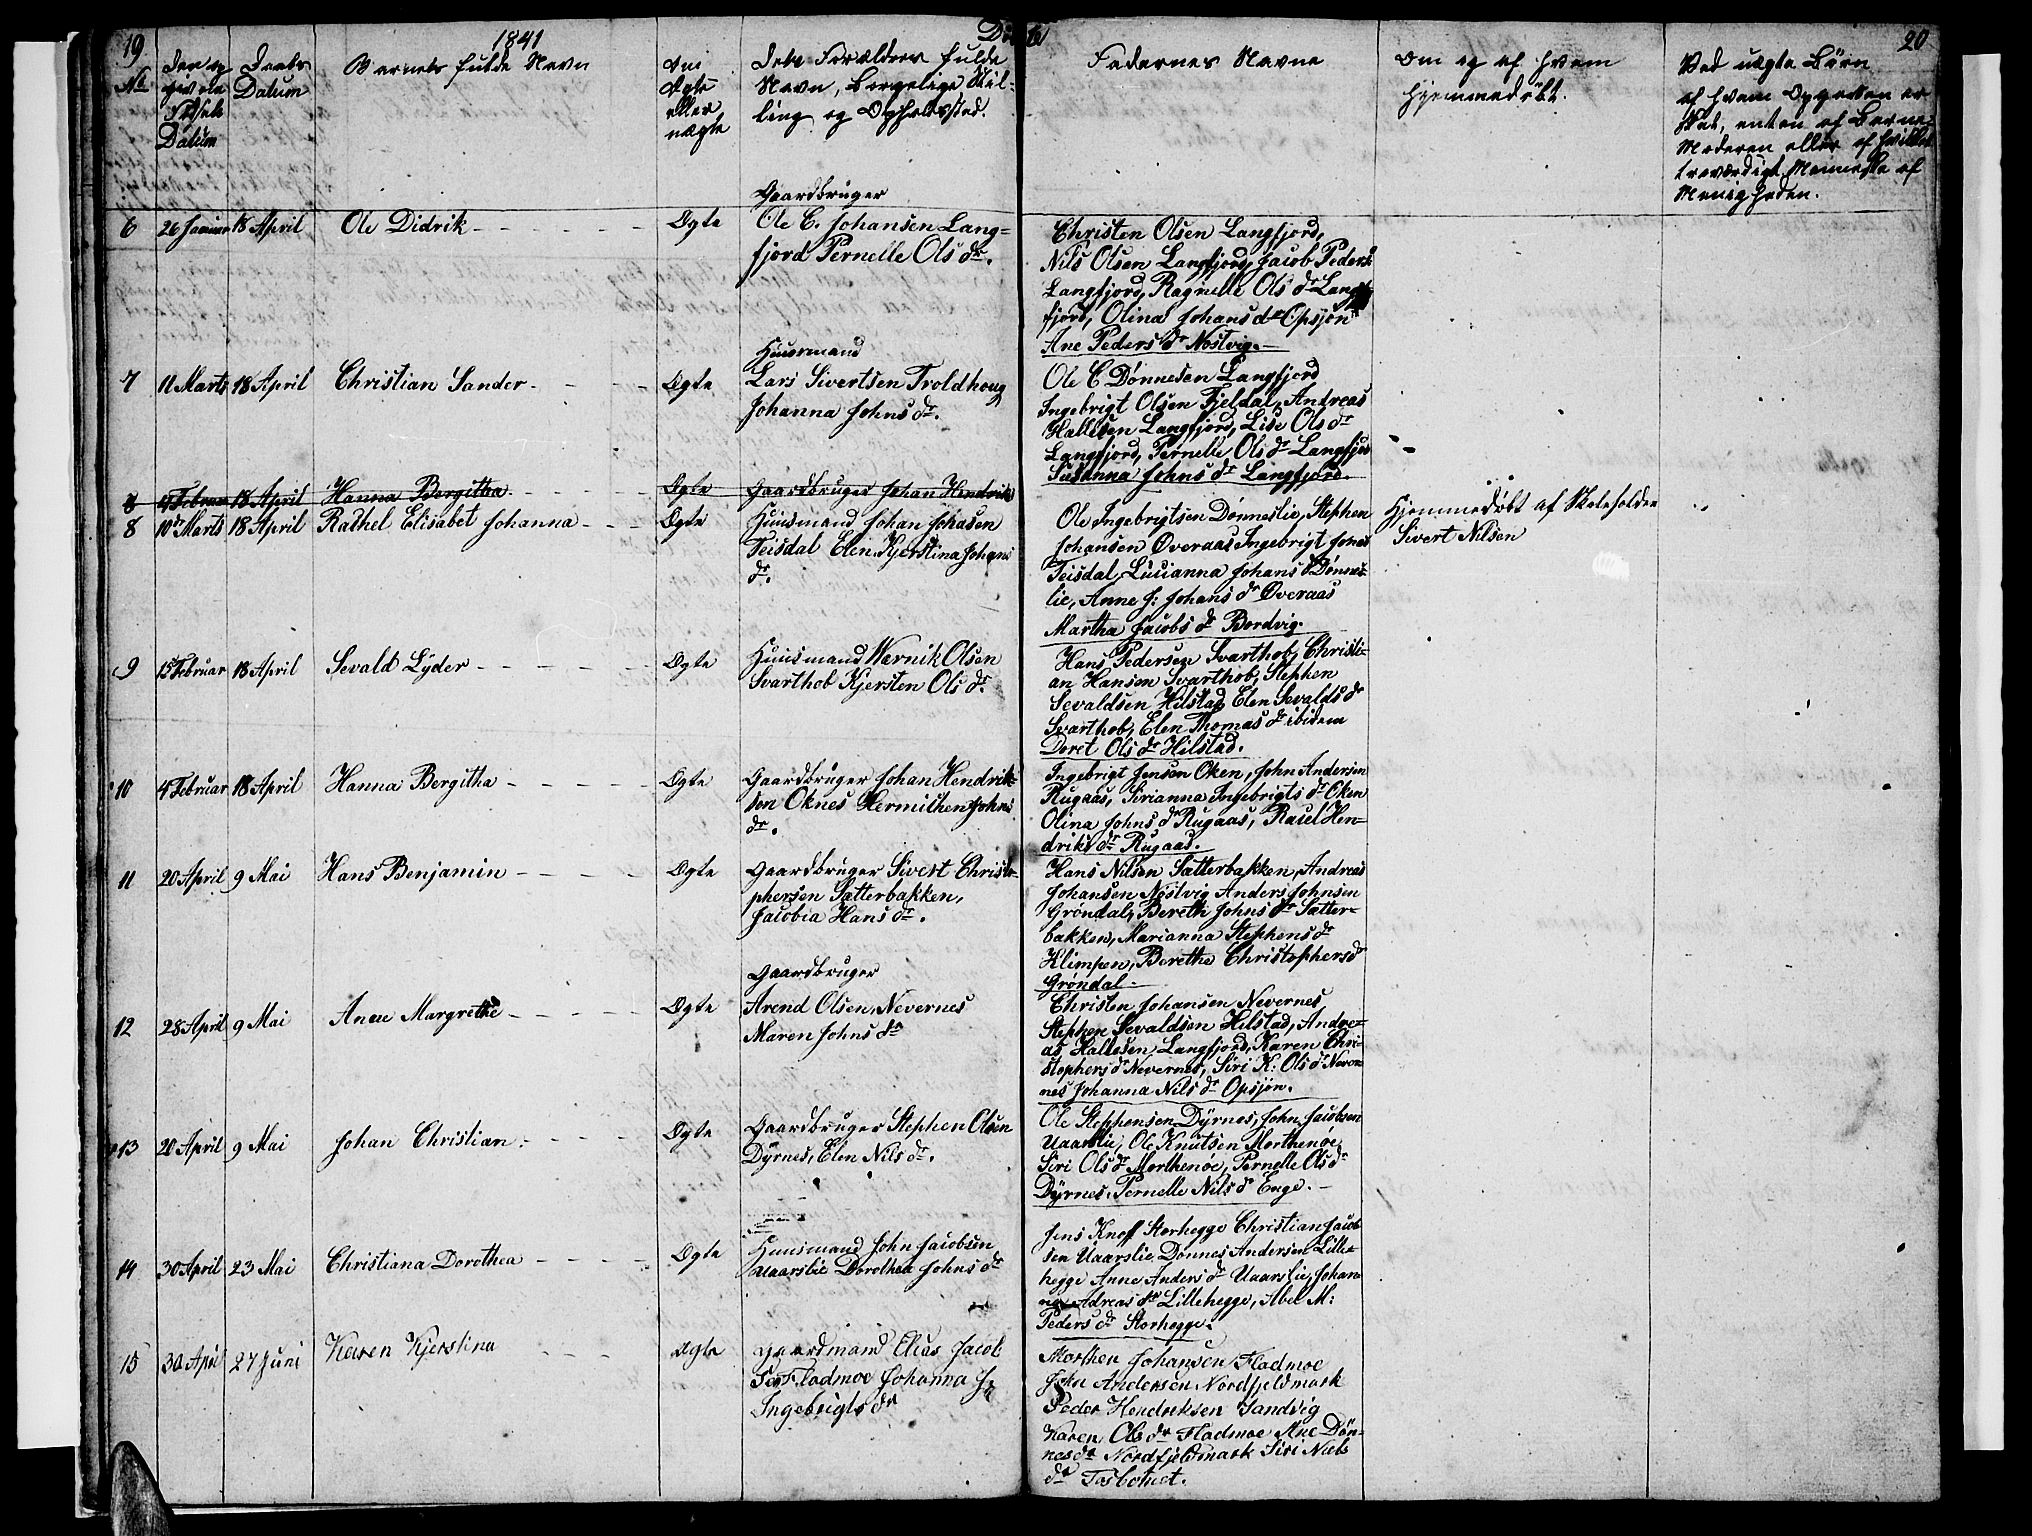 19
1841
20
No
Den og
givne
Fødsels
Datum
Daabs
Datum
Barnets fulde Navn
Om
Ægte
eller
uægte
Dets Forældres fulde
Navn, borgelige Stil-
ling og Opholdssted.
Fadernes Navne
Om og af hvem
hjemmedøbt.
Ved uægte Børn
af hvem Opgaven er
skeet, enten af Barne-
Moderen eller af hvilket
troværdigt Menneske af
Menigheden.
6 26 Januar 18 April Ole Didrik Ægte
Gaardbruger
Ole C. Johansen Lang-
fjord Pernelle Ols dr.
Christen Olsen Langfjord,
Nils Olsen Langfjord, Jacob Peders
Langfjord, Ragnelle Ols dr Lang-
fjord, Olina Johans dr Opsjøn
Ane Peders dr Nostvig.
7 11 Marts 18 April Christian Sander Ægte
Huusmand
Lars Sivertsen Troldhoug
Johanna Johns dr.
Ole C Dønnesen Langfjord
Ingebrigt Olsen Fjeldal, Andreas
Hallesen Langfjord, Lise Ols dr
Langfjord, Pernelle Ols dr Langfjor
Susanna Johns dr Langfjord.
8 4 Februar 18 April Hanna Bergitha Ægte Gaardbruger Johan Hendrik
8 10de Marts 18 April Rachel Elisabet Johanna Ægte
Huusmand Johan Johasen
Teisdal Elen Kjerstina Johans
dr.
Ole Ingebrigtsen Dønneslie, Stephen
Johansen Overaas Ingebrigt Jones
Teisdal, Lusianna Johans dr Dønnes-
lie, Anne J: Johans dr Overaas
Martha Jacobs dr Bordvig.
Hjemmedøbt af Skoleholder
Sivert Nilsen
9 15 Februar 18 April Sevald Lyder Ægte
Huusmand Wernik Olsen
Svarthob Kjersten Ols dr.
Hans Pedersen Svarthob, Christi-
an Hansen Svarthob, Stephen
Sevaldsen Hilstad Elen Sevalds dr
Svarthob, Elen Thomas dr ibidem
Doret Ols dr Hilstad.
10 4 Februar 18 April Hanna Bergitha Ægte
Gaardbruger Johan Hendrik-
sen Oknes Hermithen Johns
dr.
Ingebrigt Jensen Oken, John Andersen
Rugaas, Sirianna Ingebrigts dr Oken
Olina Johns dr Rugaas, Rasel Hen-
driks dr Rugaas.
11 20 April 9 Mai Hans Benjamin Ægte
Gaardbruger Sivert Christo-
phersen Satterbakken,
Jacobia Hans dr.
Hans Nilsen Satterbakken, Andreas
Johansen Nostvig Anders Johnsen
Grøndal, Bereth Johns dr Satter-
bakken, Marianna Stephens dr
Klimpen, Berethe Christophers dr
Grøndal
12 28 April 9 Mai Anne Margrethe Ægte
Gaardbruger
Arend Olsen Nevernes
Maren Johns dr
Christen Johansen Nevernes
Stephen Sevaldsen Hilstad, Andre-
as Hallesen Langfjord, Karen Chri-
stophers dr Nevernes, Siri K: Ols dr Never-
nes Johanna Nils dr Opsjøn.
13 20 April 9 Mai Johan Christian Ægte
Gaardbruger Stephen Olsen
Dyrnes, Elen Nils dr.
Ole Stephensen Dyrnes, John Jacobsen
Uaarslie, Ole Knutsen Morthenøe,
Siri Ols dr Morthenøe, Pernelle Ols dr
Dyrnes, Pernelle Nils dr Enge.
14 30 April 23 Mai Christiana Dorothea Ægte
Huusmand John Jacobsen
Uaarslie Dorothea Johns dr
Jens Knoff Storhegge Christian Jacob
sen Uaarslie Dønnes Andersen Lille-
hegge Anne Anders dr Uaarslie, Johan
na Adreas dr Lillehegge, Abel M:
Peders dr Storhegge.
15 30 April 27 Juni Karen Kjerstina Ægte
Gaardmand Elias Jacob
Sen Fladmoe Johanna J.
Ingebrigts dr
Morthen Johansen Fladmoe
John Andersen Nordfjeldmark
Peder Hendriksen Sandvig
Karen Ols dr Fladmoe Ane Døn-
nes dr Nordfjeldmark Siri Niels
dr Tosbotnet.